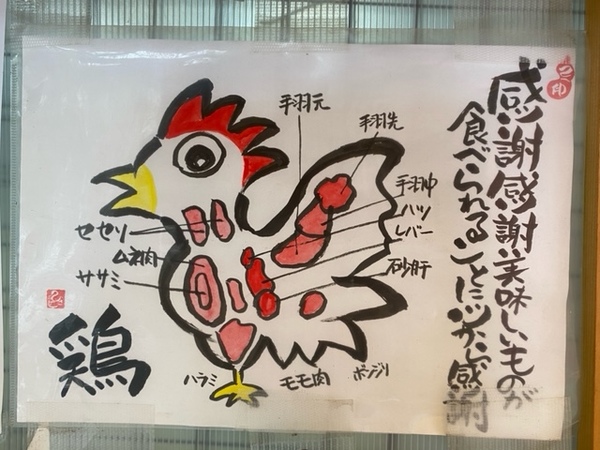 感謝感謝美味しいものが
食べられることにいつも感謝
手羽元
手羽先
手羽中
ハツ
レバー
砂肝
セセリ
ムネ肉
ササミ
鶏
ハラミ
モモ肉
ボンジリ